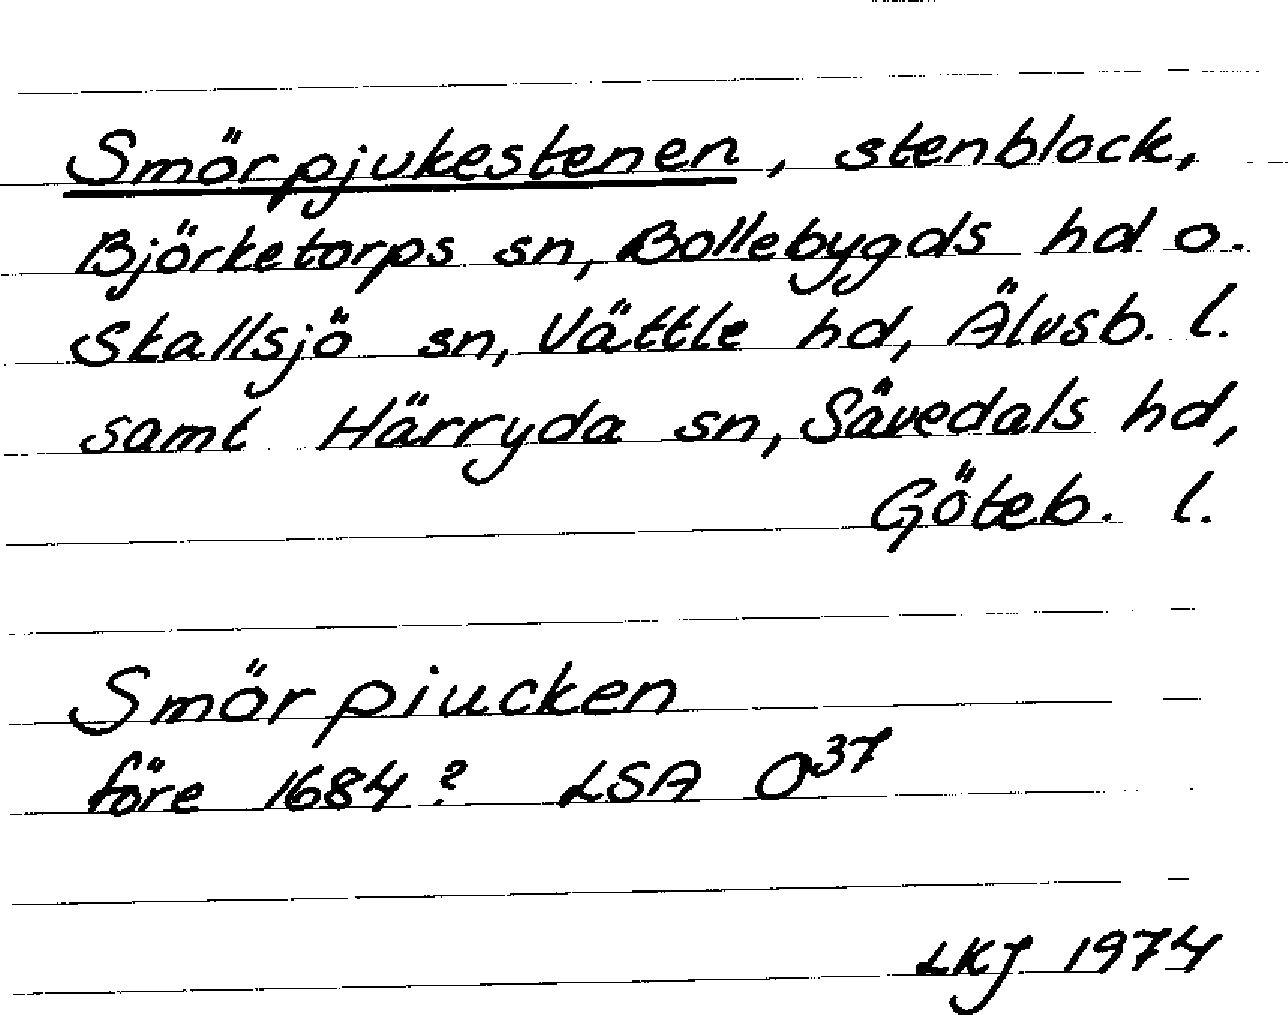 Smörpjukestenen, stenblock,
Björketorps sn, Bollebygds hd o.
Skallsjö sn, Vättle hd, Älvsb. l.
samt Härryda sn, Sävedals hd,
Göteb. l.
Smörpiucken
före 1684? LSA O³⁷
LKJ 1974